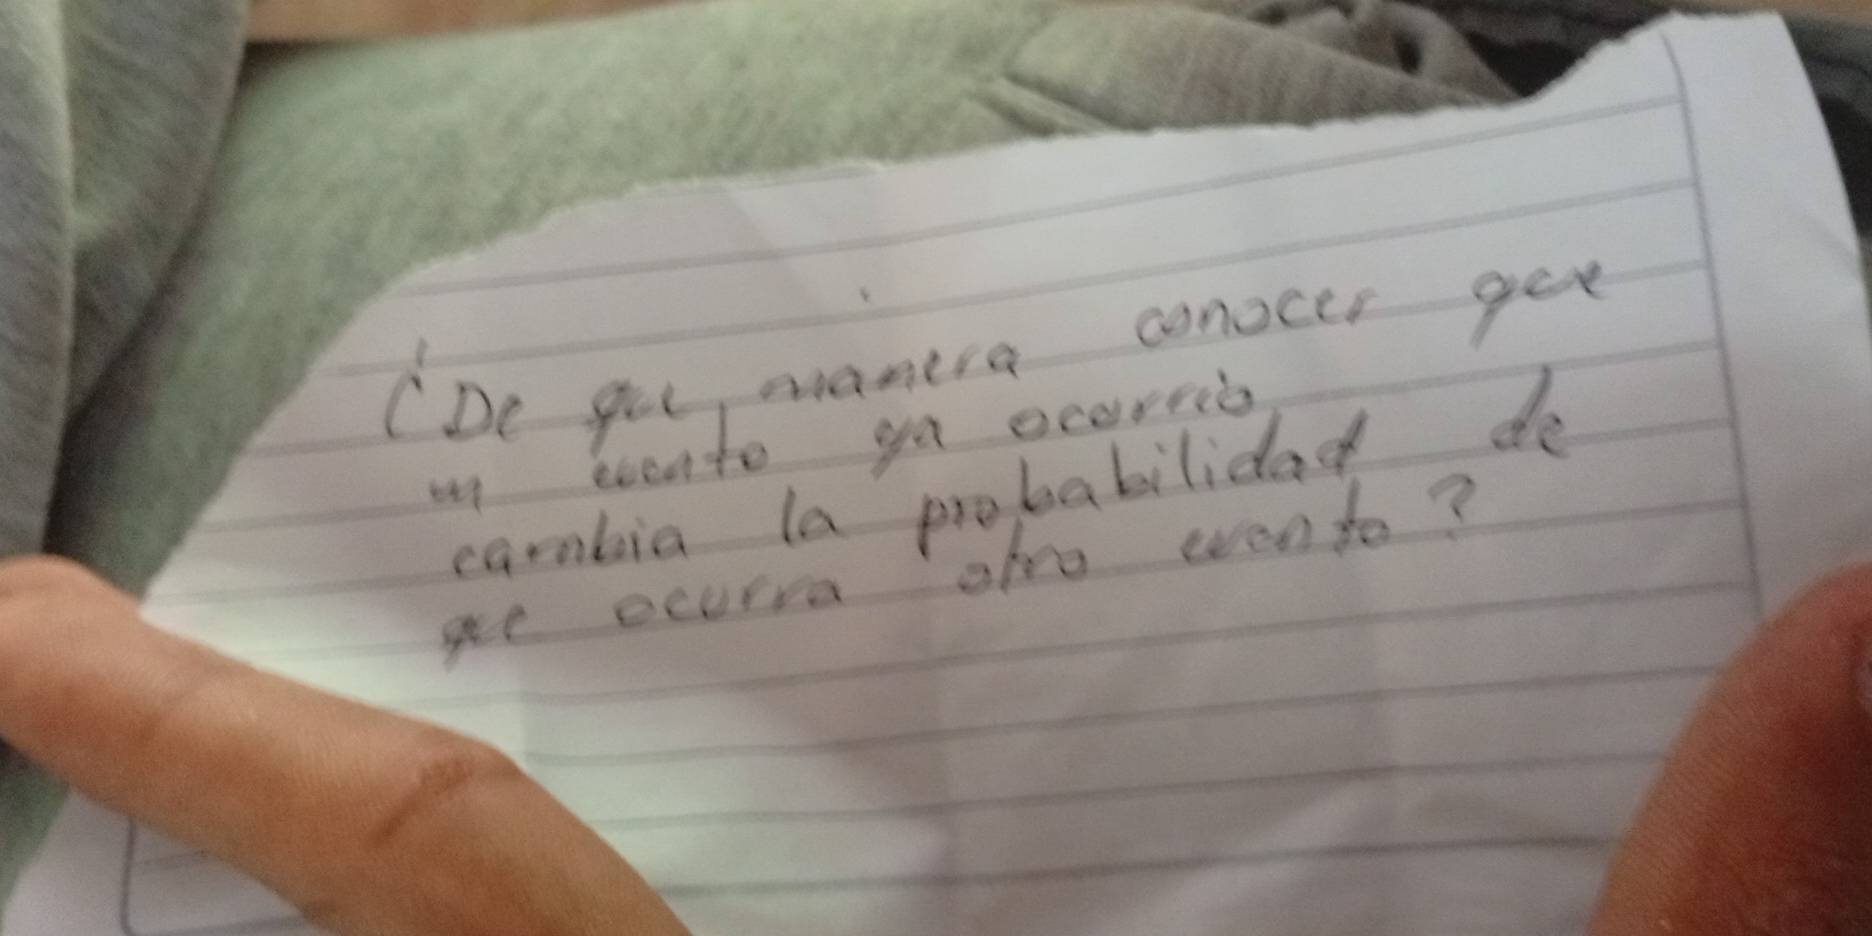 ¿De que manera conocer que
un evento ya ocurrió
cambia la probabilidad de
que ocurra otro evento?